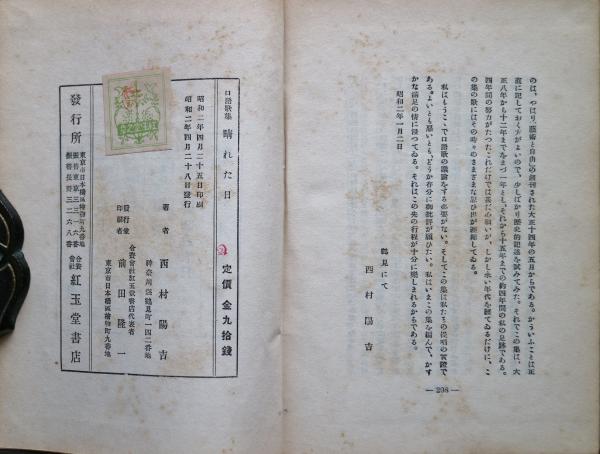 のは、やはり「藝術と自由」の創刊された大正十四年の五月からである。かういふことは正
直に記しておく方がよいので、少しばかり歴史的記述を試みてみた。それでこの集は、大
正八年から十二年までをまづ一年とし、それから十五年までの約四年間の私の足跡である。
四年間の努力がたつたこれだけでは甚だ心細いが、しかし永い年代を經てゐるだけに、こ
の集の歌にはその時々のさまざまな思ひ出が纏綿してゐる。
私はもうこゝで口語歌の議論をする必要がない。そしてこの集は私たちの從唱の實證で
ある。よいとも惡いとも、どうか存分に御批評が願ひたい。私はいまこの集を編んで、かす
かな滿足の情に浸つてゐる。それはこの先の行程が十分に樂しまれるからである。
昭和二年一月二日
鶴見にて
西村陽吉
— 298 —
口語歌集 晴れた日
昭和二年四月二十五日印刷
昭和二年四月二十八日發行
定價 金九拾錢
著者 西村陽吉
神奈川縣鶴見町一四二番地
發行兼印刷者 合資會社紅玉堂書店代表者
前田隆一
東京市日本橋區檜物町九番地
發行所
東京市日本橋區檜物町九番地
振替東京三三一六番
振替長野三二六八番
合資會社 紅玉堂書店